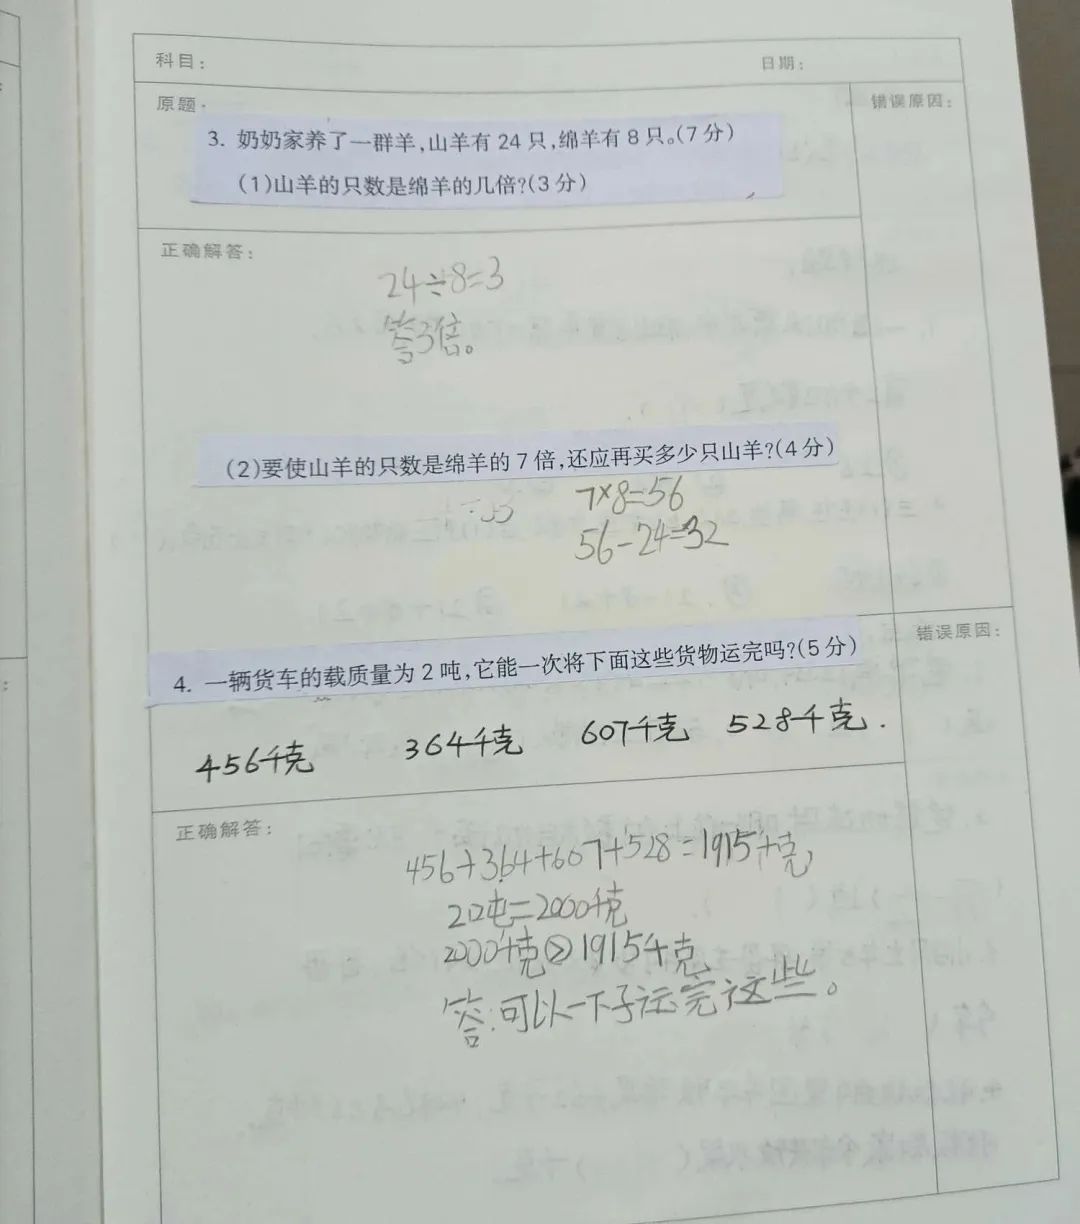 科目： 日期：
原题： 错误原因：
3. 奶奶家养了一群羊,山羊有 24 只,绵羊有 8 只。(7 分)
(1)山羊的只数是绵羊的几倍?(3 分)
正确解答：
24÷8=3
答3倍。
(2)要使山羊的只数是绵羊的 7 倍,还应再买多少只山羊?(4 分)
7×8=56
56-24=32
错误原因：
4. 一辆货车的载质量为 2 吨,它能一次将下面这些货物运完吗?(5 分)
456千克 364千克 607千克 528千克.
正确解答：
456+364+607+528=1915千克
2吨=2000千克
2000千克>1915千克
答:可以一下子运完这些。